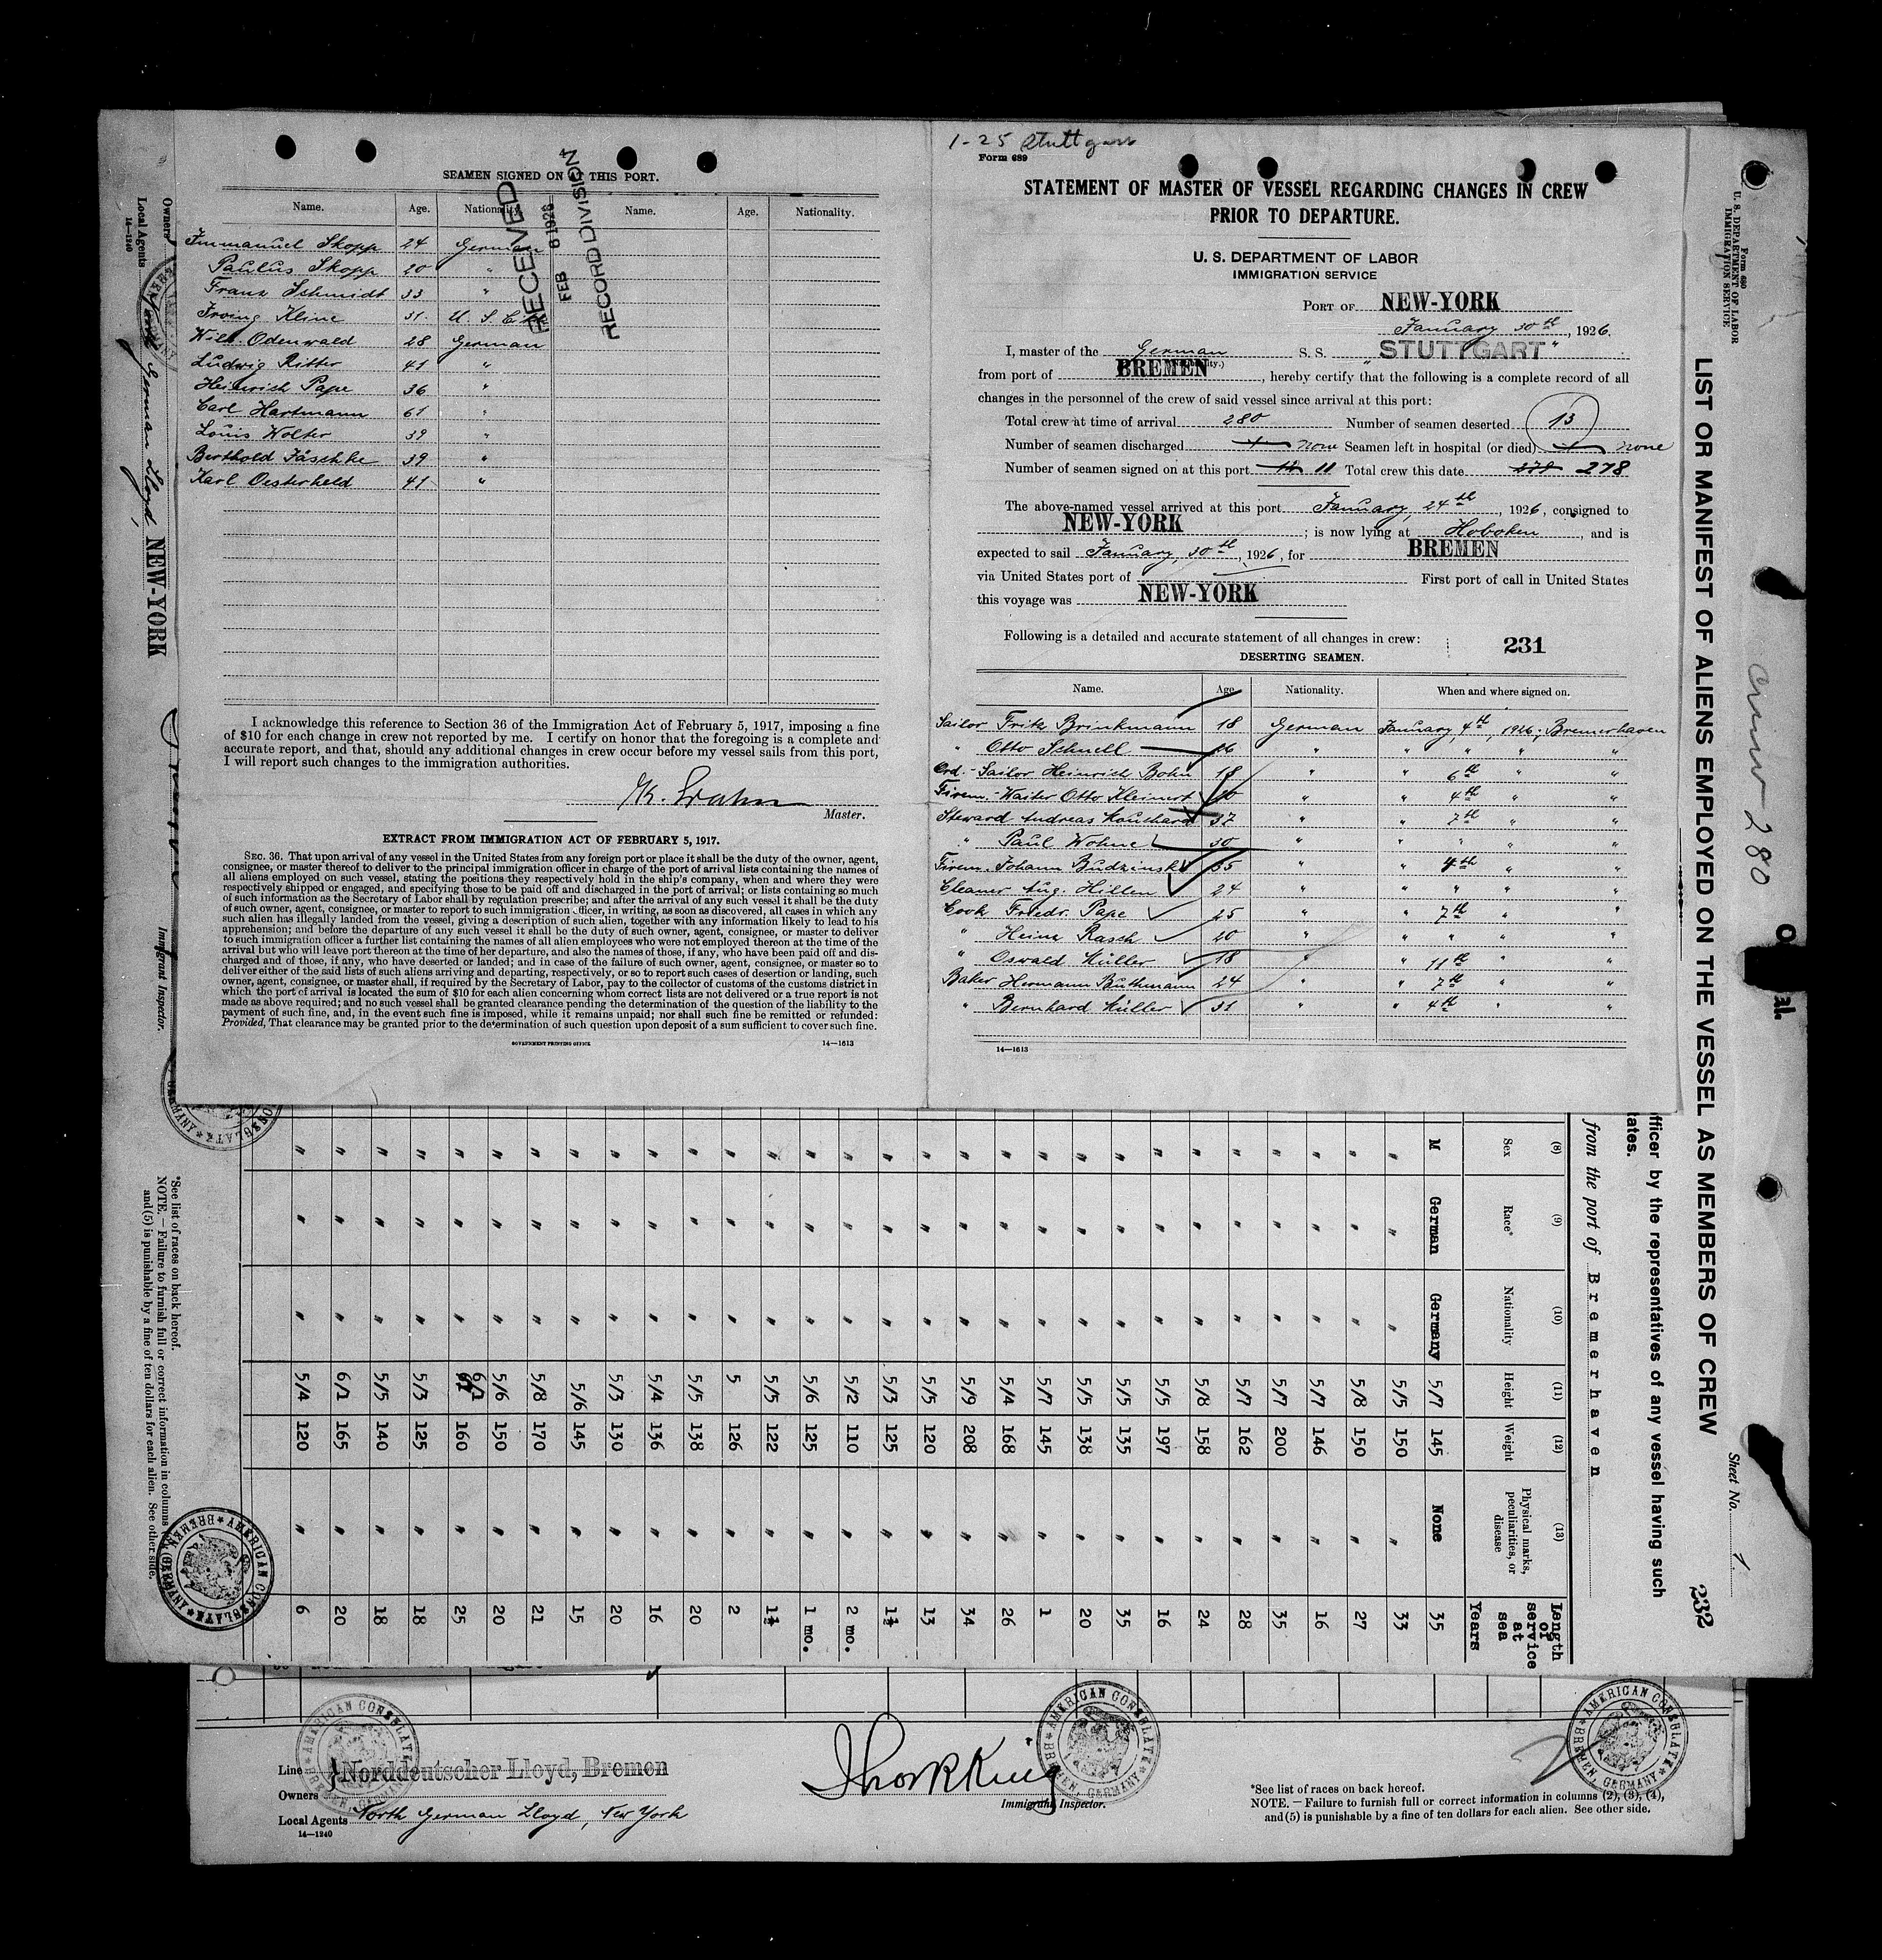 1-25 Stuttgart
Form 689
STATEMENT OF MASTER OF VESSEL REGARDING CHANGES IN CREW
PRIOR TO DEPARTURE.
U. S. DEPARTMENT OF LABOR
IMMIGRATION SERVICE
PORT OF NEW-YORK
January 30th, 1926.
I, master of the German S. S. "STUTTGART"
from port of BREMEN, hereby certify that the following is a complete record of all
changes in the personnel of the crew of said vessel since arrival at this port:
Total crew at time of arrival 280 Number of seamen deserted 13
Number of seamen discharged none Seamen left in hospital (or died) none
Number of seamen signed on at this port 11 Total crew this date 278
The above-named vessel arrived at this port January, 24th, 1926, consigned to
NEW-YORK; is now lying at Hoboken, and is
expected to sail January, 30th, 1926, for BREMEN
via United States port of First port of call in United States
this voyage was NEW-YORK
Following is a detailed and accurate statement of all changes in crew: 231
DESERTING SEAMEN.
Name. Age. Nationality. When and where signed on.
Sailor Fritz Brinkmann 18 German January, 4th, 1926; Bremerhaven
" Otto Schnell 26 " " " " "
Ord.-Sailor Heinrich Bohn 18 " " 6th " "
Firem.-Waiter Otto Kleinert 20 " " 4th " "
Steward Andreas 37 " " 7th " "
" Paul Wohne 30 " " " " "
Firem. Johann Budzinski 35 " " 4th " "
Cleaner Aug. Hillen 24 " " " " "
Cook Friedr. Pape 25 " " 7th " "
" Heinz Rasch 20 " " " " "
" Oswald Müller 18 " " 11th " "
Baker Hermann Buthmann 24 " " 7th " "
" Bernhard Müller 31 " " 4th " "
14—1613
SEAMEN SIGNED ON AT THIS PORT.
Name. Age. Nationality. Name. Age. Nationality.
Immanuel Skopp 24 German
Paulus Skopp 20 "
Franz Schmidt 33 "
Irving Kline 31 U. S. Citz
Wilh. Odenwald 28 German
Ludwig Ritter 41 "
Heinrich Pape 36 "
Carl Hartmann 61 "
Louis Wolter 39 "
Berthold Jäschke 39 "
Karl Oesterheld 41 "
RECEIVED
FEB 6 1926
RECORD DIVISION
I acknowledge this reference to Section 36 of the Immigration Act of February 5, 1917, imposing a fine
of $10 for each change in crew not reported by me. I certify on honor that the foregoing is a complete and
accurate report, and that, should any additional changes in crew occur before my vessel sails from this port,
I will report such changes to the immigration authorities.
Master.
EXTRACT FROM IMMIGRATION ACT OF FEBRUARY 5, 1917.
SEC. 36. That upon arrival of any vessel in the United States from any foreign port or place it shall be the duty of the owner, agent,
consignee, or master thereof to deliver to the principal immigration officer in charge of the port of arrival lists containing the names of
all aliens employed on such vessel, stating the positions they respectively hold in the ship's company, when and where they were
respectively shipped or engaged, and specifying those to be paid off and discharged in the port of arrival; or lists containing so much
of such information as the Secretary of Labor shall by regulation prescribe; and after the arrival of any such vessel it shall be the duty
of such owner, agent, consignee, or master to report to such immigration officer, in writing, as soon as discovered, all cases in which any
such alien has illegally landed from the vessel, giving a description of such alien, together with any information likely to lead to his
apprehension; and before the departure of any such vessel it shall be the duty of such owner, agent, consignee, or master to deliver
to such immigration officer a further list containing the names of all alien employees who were not employed thereon at the time of the
arrival but who will leave port thereon at the time of her departure, and also the names of those, if any, who have been paid off and dis-
charged and of those, if any, who have deserted or landed; and in case of the failure of such owner, agent, consignee, or master so to
deliver either of the said lists of such aliens arriving and departing, respectively, or so to report such cases of desertion or landing, such
owner, agent, consignee, or master shall, if required by the Secretary of Labor, pay to the collector of customs of the customs district in
which the port of arrival is located the sum of $10 for each alien concerning whom correct lists are not delivered or a true report is not
made as above required; and no such vessel shall be granted clearance pending the determination of the question of the liability to the
payment of such fine, and, in the event such fine is imposed, while it remains unpaid; nor shall such fine be remitted or refunded:
Provided, That clearance may be granted prior to the determination of such question upon deposit of a sum sufficient to cover such fine.
GOVERNMENT PRINTING OFFICE 14—1613
Form 680
U. S. DEPARTMENT OF LABOR
IMMIGRATION SERVICE
LIST OR MANIFEST OF ALIENS EMPLOYED ON THE VESSEL AS MEMBERS OF CREW
Sheet No. 1
232
Crew 280
officer by the representatives of any vessel having such
tates.
from the port of Bremerhaven
(8) (9) (10) (11) (12) (13)
Sex Race* Nationality Height Weight Physical marks, peculiarities, or disease Length of service at sea Years
M German Germany 5/7 145 None 35
" " " 5/5 150 " 33
" " " 5/8 150 " 27
" " " 5/7 146 " 16
" " " 5/7 200 " 35
" " " 5/7 162 " 28
" " " 5/8 158 " 24
" " " 5/5 197 " 16
" " " 5/5 135 " 35
" " " 5/5 138 " 20
" " " 5/7 145 " 1
" " " 5/4 168 " 26
" " " 5/9 208 " 34
" " " 5/5 120 " 13
" " " 5/3 125 " 1½
" " " 5/2 110 " 2 mo.
" " " 5/6 125 " 1 mo.
" " " 5/5 122 " 1½
" " " 5 126 " 2
" " " 5/5 138 " 20
" " " 5/4 136 " 16
" " " 5/3 130 " 20
" " " 5/6 145 " 15
" " " 5/8 170 " 21
" " " 5/6 150 " 20
" " " 6/1 160 " 25
" " " 5/3 125 " 18
" " " 5/5 140 " 18
" " " 6/1 165 " 20
" " " 5/4 120 " 6
*See list of races on back hereof.
NOTE.—Failure to furnish full or correct information in columns
and (5) is punishable by a fine of ten dollars for each alien. See other side.
Immigrant Inspector.
Owners
Local Agents North German Lloyd, NEW-YORK
14—1240
AMERICAN CONSULATE BREMEN, GERMANY
Line Norddeutscher Lloyd, Bremen
Owners
Local Agents North German Lloyd, New York
14—1240
Immigrant Inspector.
AMERICAN CONSULATE BREMEN, GERMANY
*See list of races on back hereof.
NOTE.—Failure to furnish full or correct information in columns (2), (3), (4),
and (5) is punishable by a fine of ten dollars for each alien. See other side.
AMERICAN CONSULATE BREMEN, GERMANY